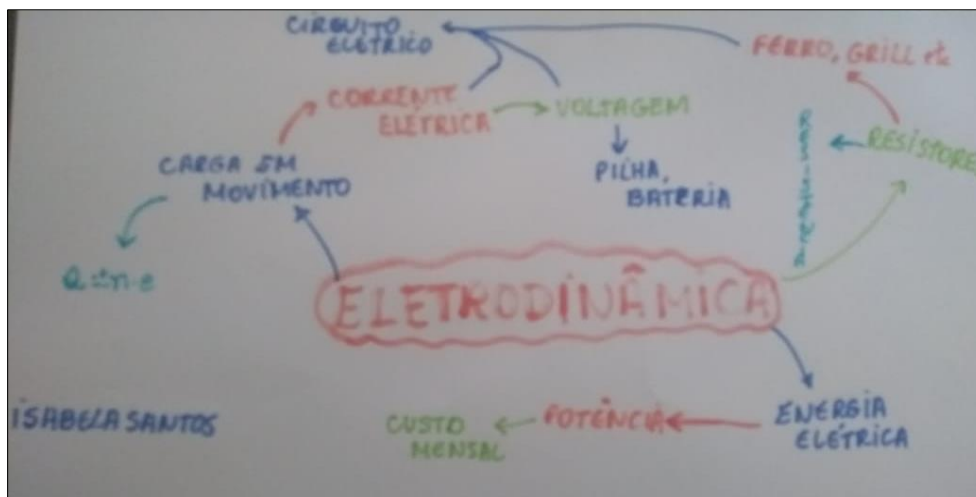 CIRCUITO
ELÉTRICO
FERRO, GRILL etc
CORRENTE
ELÉTRICA
VOLTAGEM
RESISTORES
RESISTÊNCIA
CARGA EM
MOVIMENTO
PILHA,
BATERIA
Q=±n·e
ELETRODINÂMICA
ISABELA SANTOS
CUSTO
MENSAL
POTÊNCIA
ENERGIA
ELÉTRICA